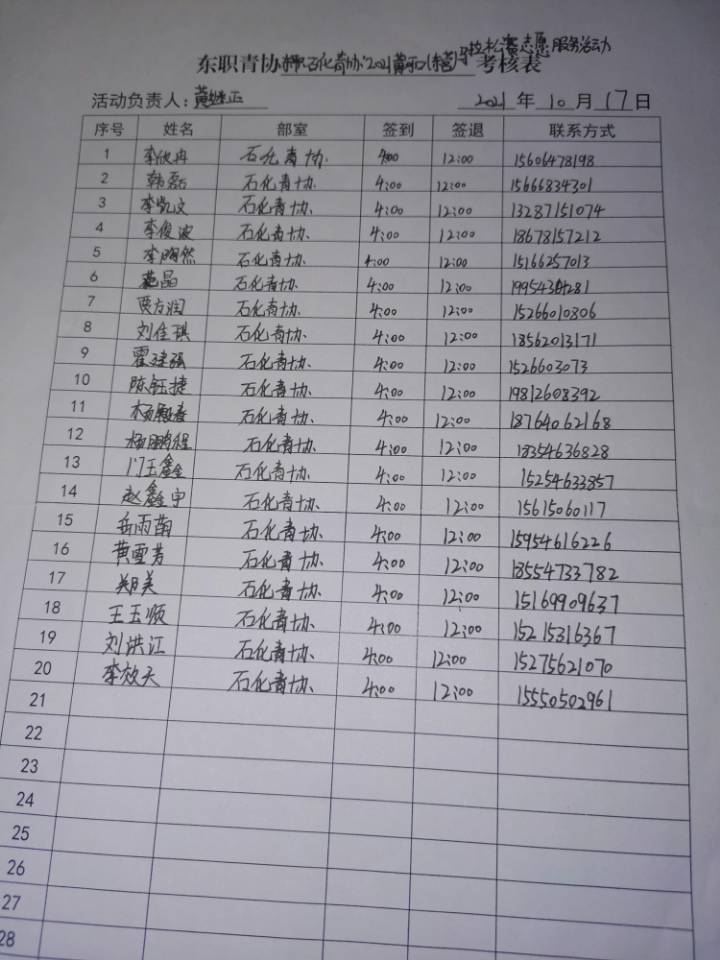 东职青协东职石化青协"2021黄河口(东营)马拉松赛志愿服务活动考核表
活动负责人：黄继正 2021 年 10 月 17 日
序号 姓名 部室 签到 签退 联系方式
1 李欣冉 石化青协 4:00 12:00 15606478198
2 韩磊 石化青协 4:00 12:00 15666834301
3 李凯文 石化青协 4:00 12:00 13287151074
4 李俊波 石化青协 4:00 12:00 18678157212
5 李明然 石化青协 4:00 12:00 15166257013
6 晶 石化青协 4:00 12:00
7 贾方润 石化青协 4:00 12:00 15266010806
8 刘佳琪 石化青协 4:00 12:00 18562013171
9 霍建强 石化青协 4:00 12:00 1526603073
10 陈钰捷 石化青协 4:00 12:00 19812608392
11 杨 石化青协 4:00 12:00 18764062168
12 杨鹏程 石化青协 4:00 12:00 18354636828
13 门玉鑫 石化青协 4:00 12:00 15254633857
14 赵鑫宇 石化青协 4:00 12:00 15615060117
15 岳雨萌 石化青协 4:00 12:00 15954616226
16 黄雪芳 石化青协 4:00 12:00 18554733782
17 郑美 石化青协 4:00 12:00 15169909637
18 王玉顺 石化青协 4:00 12:00 15215316367
19 刘洪江 石化青协 4:00 12:00 15275621070
20 李效天 石化青协 4:00 12:00 15550502961
21
22
23
24
25
26
27
28